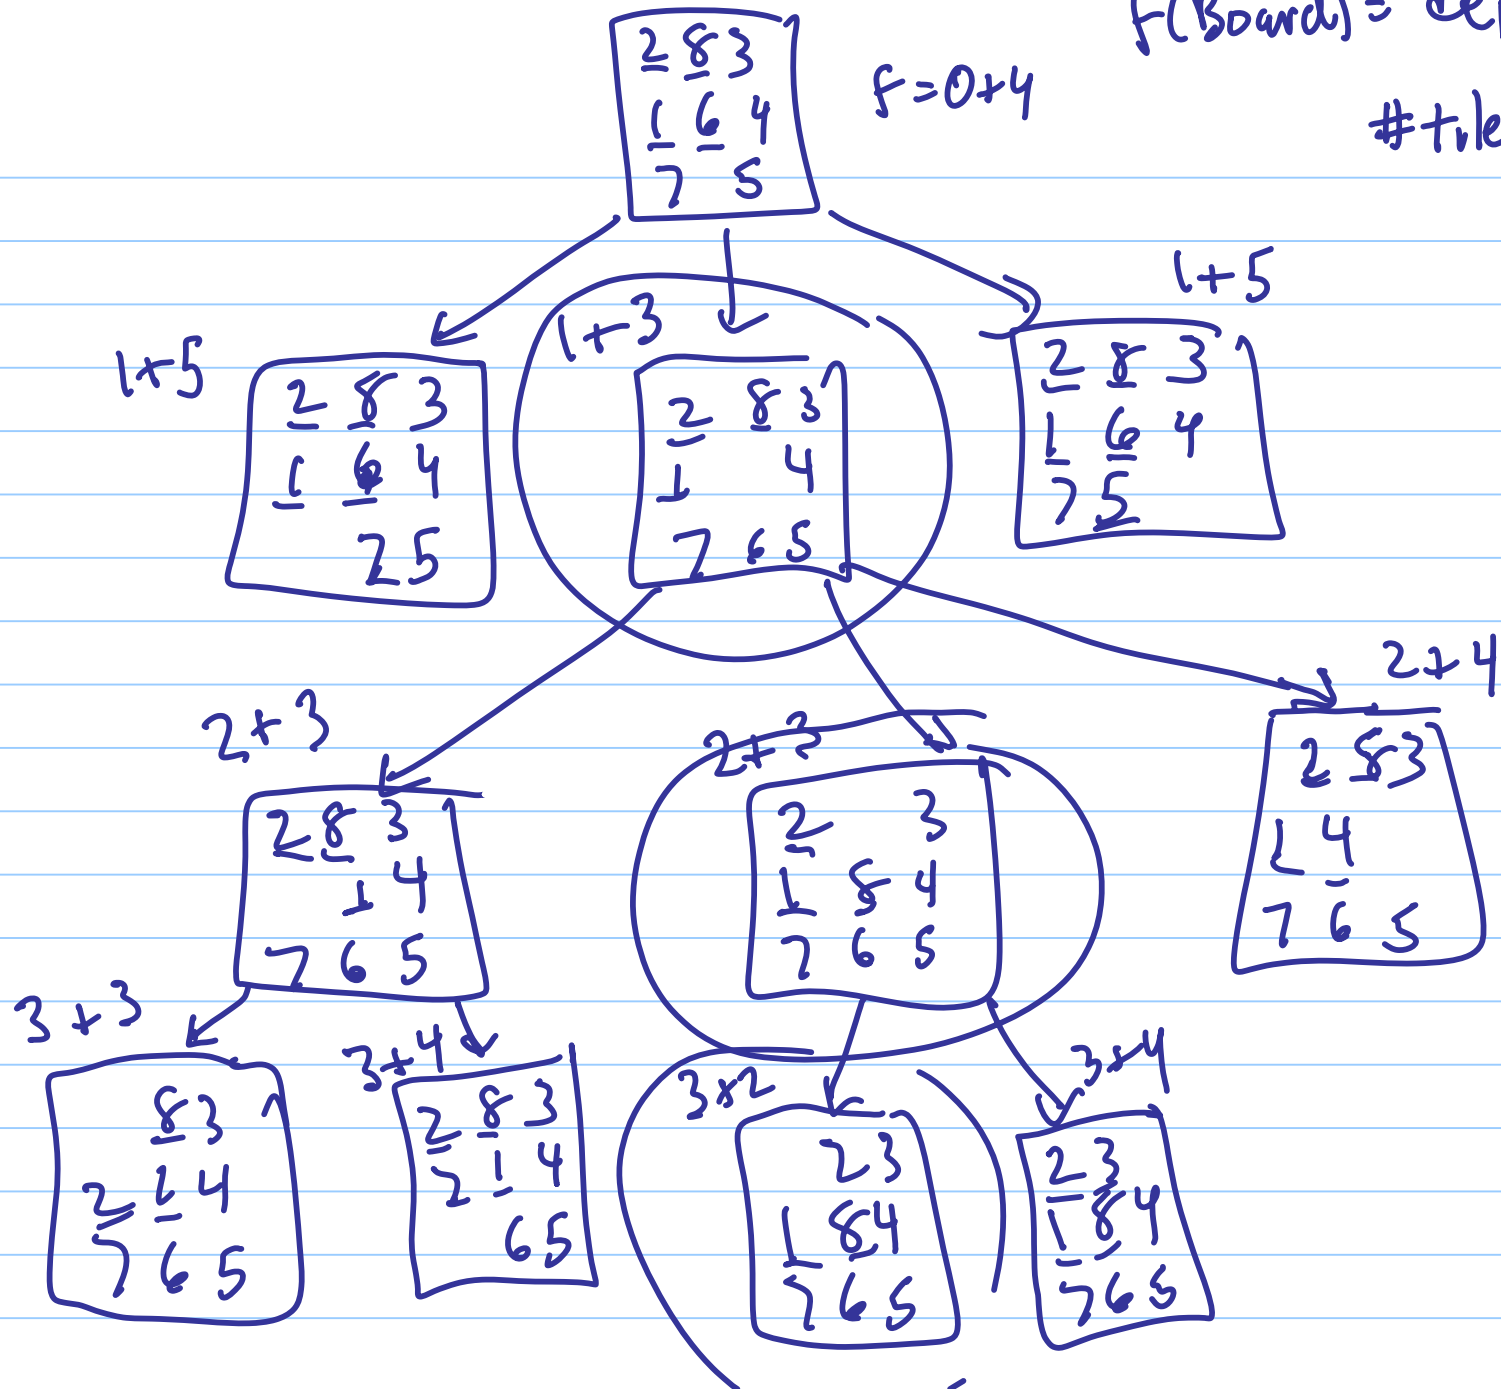 f(Board) =
2 8 3
1 6 4
7 5
f = 0+4
1+5
2 8 3
1 6 4
7 5
1+3
2 8 3
1 4
7 6 5
1+5
2 8 3
1 6 4
7 5
2+3
2 8 3
1 4
7 6 5
2+3
2 3
1 8 4
7 6 5
2+4
2 8 3
1 4
7 6 5
3+3
8 3
2 1 4
7 6 5
3+4
2 8 3
7 1 4
6 5
3+2
2 3
1 8 4
7 6 5
3+4
2 3
1 8 4
7 6 5